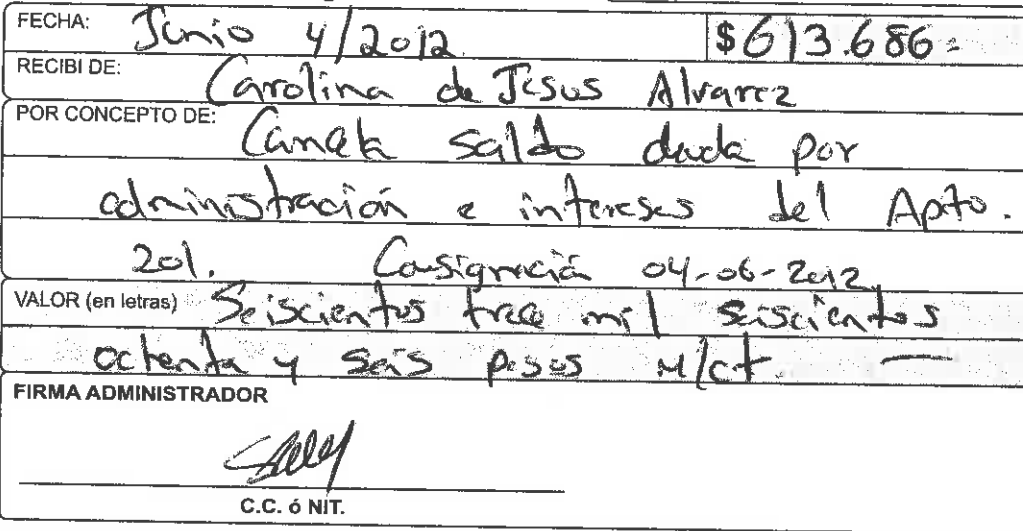 FECHA: Junio 4/2012 $613.686=
RECIBI DE: Carolina de Jesus Alvarez
POR CONCEPTO DE: Cancela saldo deuda por
administración e intereses del Apto.
201. Consignación 04-06-2012
VALOR (en letras) Seiscientos trece mil seiscientos
ochenta y seis pesos M/ct.
FIRMA ADMINISTRADOR
C.C. ó NIT.